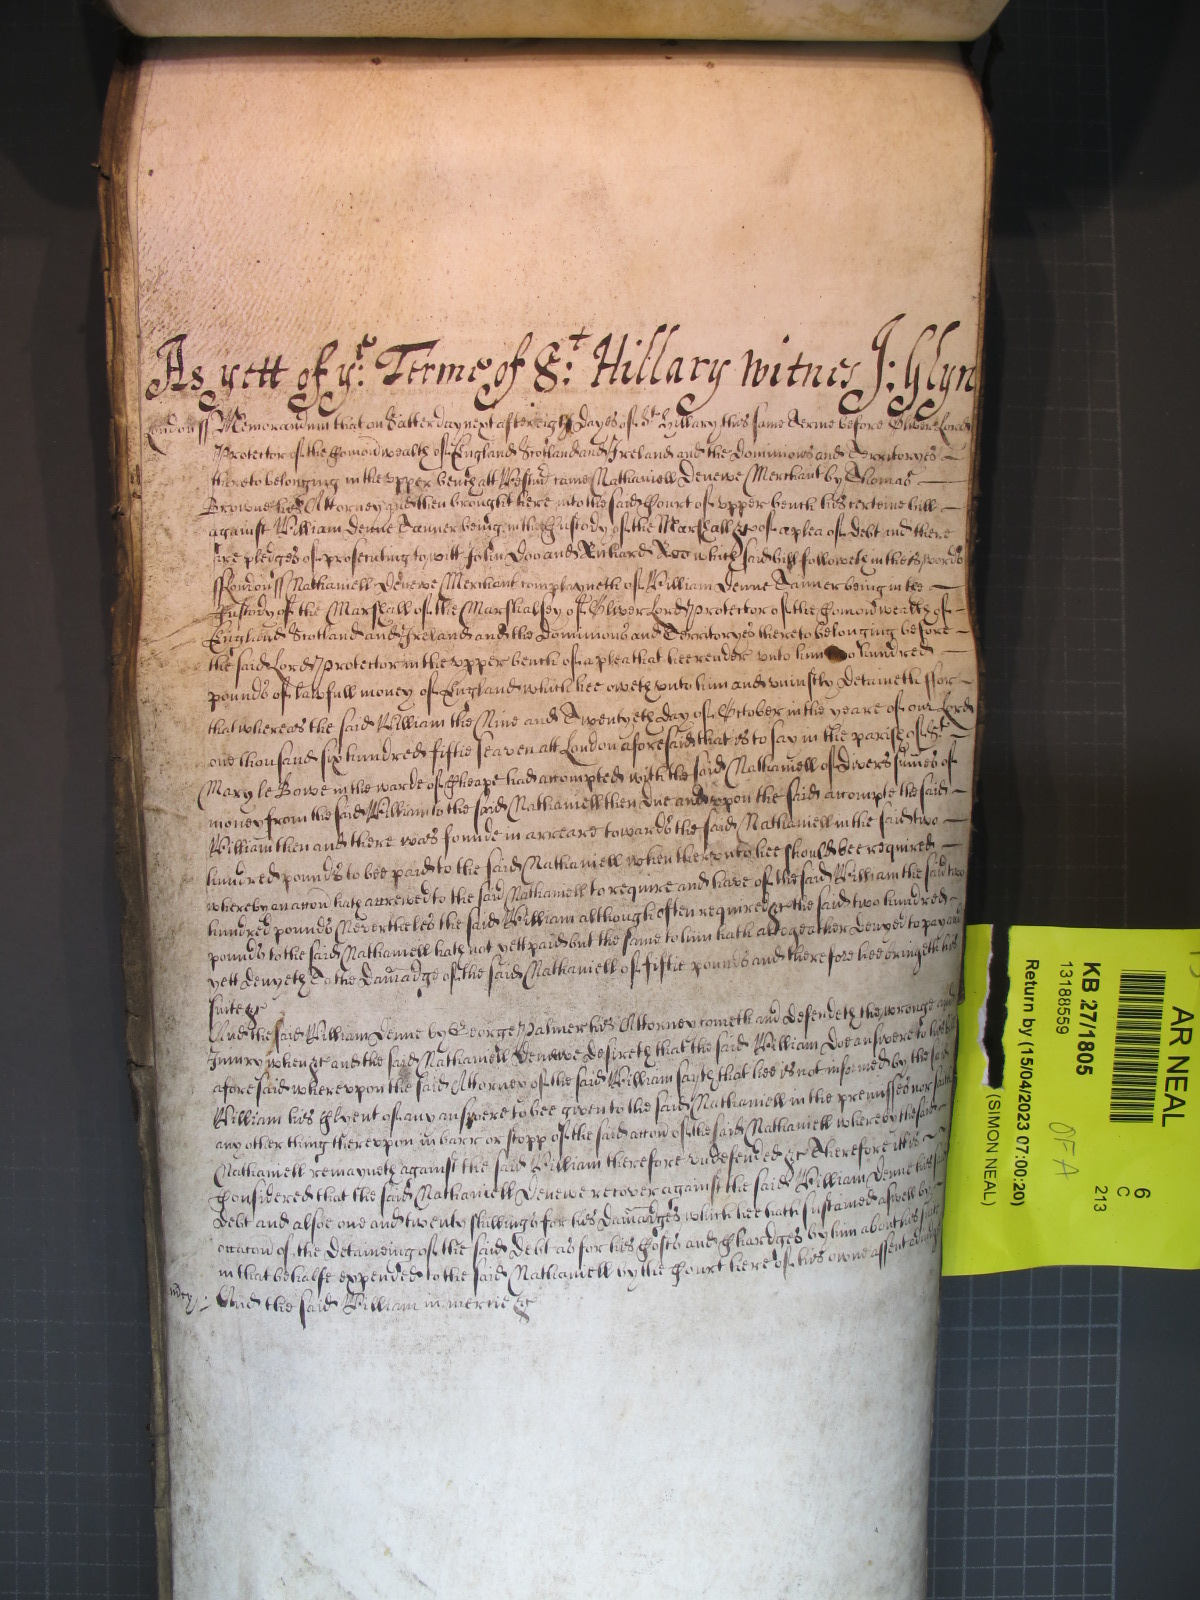 As yett of ye: Terme of St: Hillary witnes J: Glyn
London ss Memorandum that on Satterday next after eight dayes of St Hillary this same Terme before Oliver Lord
Protector of the Comonwealth of England Scotland and Ireland and the Dominions and Territoryes
thereto belonging in the vpper bench att Westmr came Nathaniell Denewe Merchant by Thomas
Browne his Attorney and then brought here into the said Court of vpper bench his certeine bill
against William Denne Tanner being in the Custody of the Marshall &c of a plea of debt and there
are pledges of prosecuting to witt John Doo and Richard Roo which said bill followeth in these words
ss London ss Nathaniell Denewe Merchant complayneth of William Denne Tanner being in the
Custody of the Marshall of the Marshalsey of Oliver Lord Protector of the Comonwealth of
England Scotland and Ireland and the Dominions and Territoryes thereto belonging before
the said Lord Protector in the vpper bench of a plea that hee render vnto him two hundred
pounds of lawfull money of England which hee oweth vnto him and vniustly detaineth ffor
that whereas the said William the Nine and Twentyeth day of October in the yeare of our Lord
one thousand six hundred fiftie seaven att London aforesaid that is to say in the parish of St
Mary le Bowe in the warde of Cheape had accompted with the said Nathaniell of divers sumes of
money from the said William to the said Nathaniell then due and vpon the said accompte the said
William then and there was founde in arreare towards the said Nathaniell in the said two
hundred pounds to bee paid to the said Nathaniell when therevnto hee should bee required
whereby an accon hath accrewed to the said Nathaniell to require and have of the said William the said two
hundred pounds Neverthelesse the said William although often required &c the said two hundred
pounds to the said Nathaniell hath not yett paid but the same to him hath altogeather denyed to pay and
yett denyeth To the damadge of the said Nathaniell of fiftie pounds and therefore hee bringeth his
suite &c
And the said William Denne by George Palmer his Attorney cometh and defendeth the wronge and
Iniury when &c and the said Nathaniell Denewe desireth that the said William doe answere to his
aforesaid wherevpon the said Attorney of the said William sayth that hee is not informed by the said
William his Clyent of any answere to bee given to the said Nathaniell in the premisses nor saith
any other thing therevpon in barr or stopp of the said accon of the said Nathaniell whereby the said
Nathaniell remayneth against the said William therefore vndefended &c Therefore itt is
Considered that the said Nathaniell Denewe recover against the said William Denne his said
debt and alsoe one and twenty shillings for his damadges which hee hath sustained aswell by
occacon of the detaineing of the said debt as for his Costs and Chardges by him about his suite
in that behalfe expended to the said Nathaniell by the Court here of his owne assent adiudged
mcy: And the said William in mercie &c
AR NEAL
KB 27/1805
13188559
Return by (15/04/2023 07:00:20)
(SIMON NEAL)
OFA
6
C
213